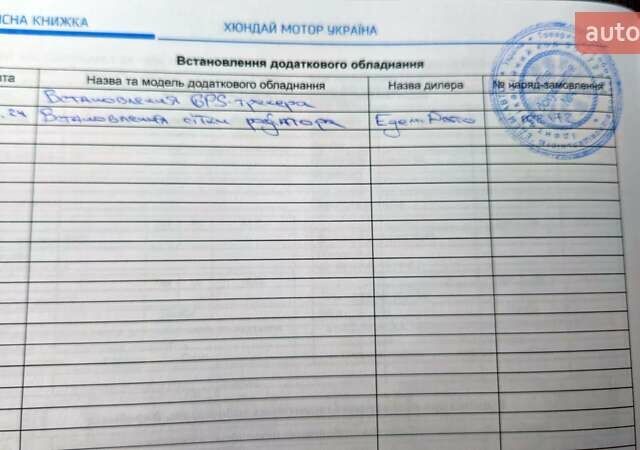 ІСНА КНИЖКА ХЮНДАЙ МОТОР УКРАЇНА
auto
Встановлення додаткового обладнання
та Назва та модель додаткового обладнання Назва дилера № наряд-замовлення
Встановлення GPS-трекера
.24 Встановлення сітки радіатора Едем Авто